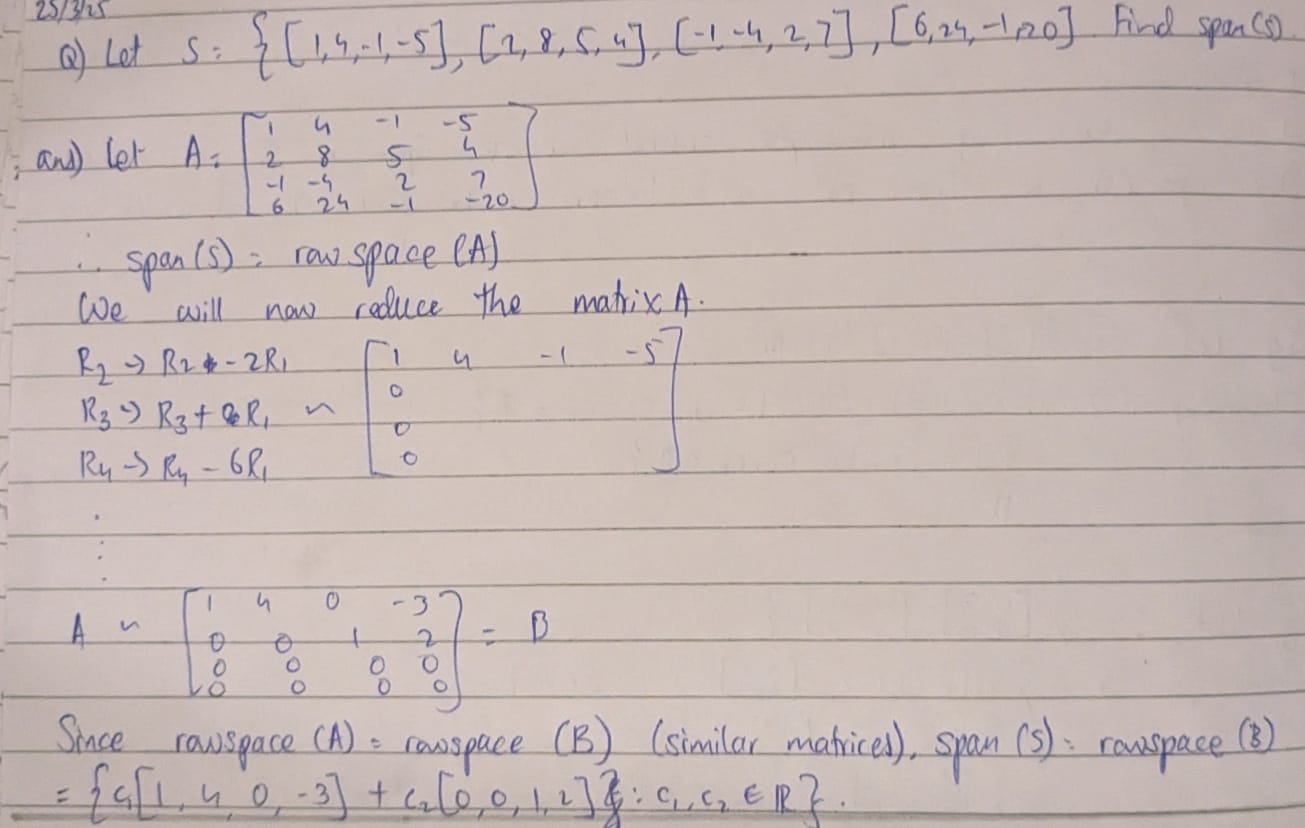 25/3/25
Q) Let S = { [1,4,-1,-5], [2,8,5,4], [-1,-4,2,7], [6,24,-1,20] Find span(s)
ans) Let A = [ 1 4 -1 -5
2 8 5 4
-1 -4 2 7
6 24 -1 -20 ]
∴ span(S) = row space (A)
We will now reduce the matrix A.
R₂ → R₂ - 2R₁ [ 1 4 -1 -5 ]
0
R₃ → R₃ + R₁ ~ 0
R₄ → R₄ - 6R₁ 0
⋮
A ~ [ 1 4 0 -3
0 0 1 2
0 0 0 0
0 0 0 0 ] = B
Since rowspace (A) = rowspace (B) (similar matrices), span (S) = rowspace (B)
= {c₁[1, 4, 0, -3] + c₂[0, 0, 1, 2] : c₁, c₂ ∈ ℝ}.